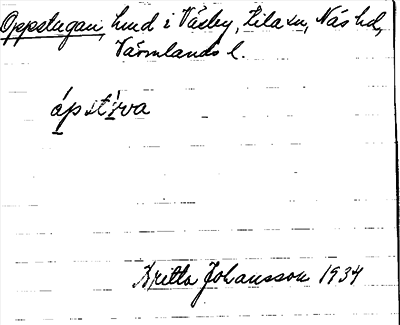 Oppstugan, lund i Väsby, Eila sn, Näs hd,
Värmlands l.
ápsti̇va
Britta Johansson 1934